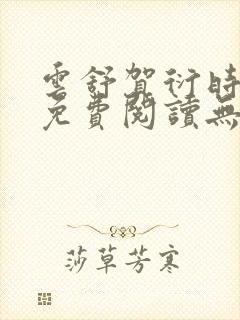 雲舒賀衍時
免費閱讀無
莎草芳寒